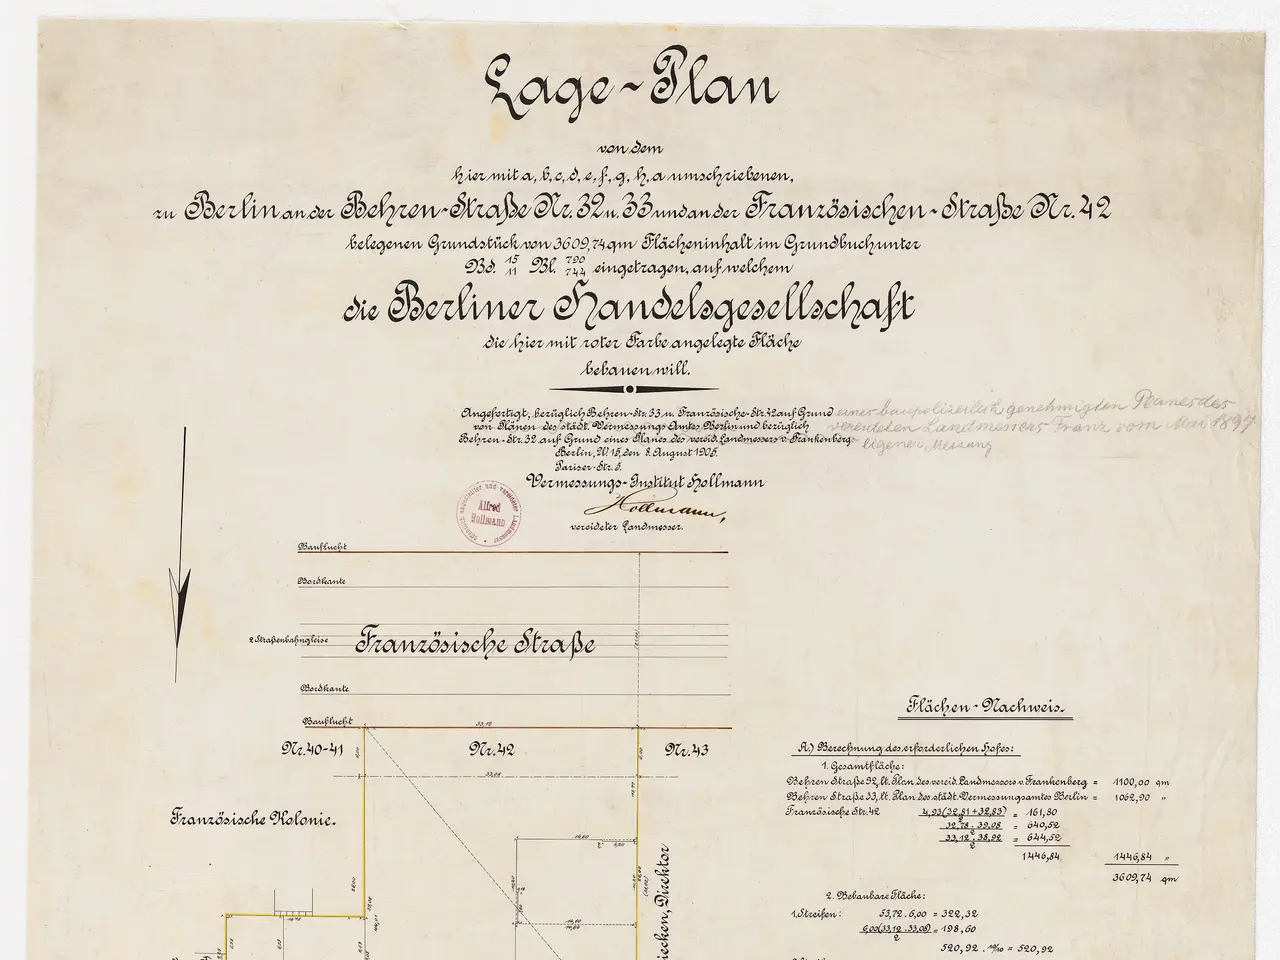 Lage-Plan
von dem
hier mit a, b, c, d, e, f, g, h, a umschriebenen,
zu Berlin an der Behren-Straße Nr. 32 u. 33 und an der Französischen-Straße Nr. 42
belegenen Grundstück von 3609,74 qm Flächeninhalt im Grundbuch unter
Bd. 15/11 Bl. 790/744 eingetragen, auf welchem
die Berliner Handelsgesellschaft
die hier mit roter Farbe angelegte Fläche
bebauen will.
Angefertigt, bezüglich Behren-Str. 33 u. Französische-Str. 42 auf Grund eines baupolizeilich genehmigten Planes des
von Plänen des städt. Vermessungs Amtes Berlin und bezüglich vereideten Landmessers Franz vom Mai 1897
Behren-Str. 32 auf Grund eines Planes des vereid. Landmessers v. Frankenberg. eigener Messung
Berlin, W 15, den 8. August 1905.
Pariser-Str. 5.
Vermessungs-Institut Hollmann
Alfred Hollmann
Hollmann,
vereideter Landmesser.
Bauflucht
Bordkante
2 Straßenbahngleise
Französische Straße
Bordkante
Bauflucht
33,12
Nr. 40-41
Nr. 42
Nr. 43
33,08
Französische Kolonie.
Direktor
Flächen-Nachweis.
A.) Berechnung des erforderlichen Hofes:
1. Gesamtfläche:
Behren Straße 32, lt. Plan des vereid. Landmessers v. Frankenberg = 1100,00 qm
Behren Straße 33, lt. Plan des städt. Vermessungsamtes Berlin = 1062,90 "
Französische Str. 42 4,93(32,81+32,83)/2 = 161,80
32,78 . 39,08/2 = 640,52
33,12 . 38,92/2 = 644,52
1446,84 1446,84 "
3609,74 qm
2. Bebaubare Fläche:
1. Streifen: 53,72 . 6,00 = 322,32
6,00(33,12 . 33,08)/2 = 198,60
520,92 . 10/10 = 520,92